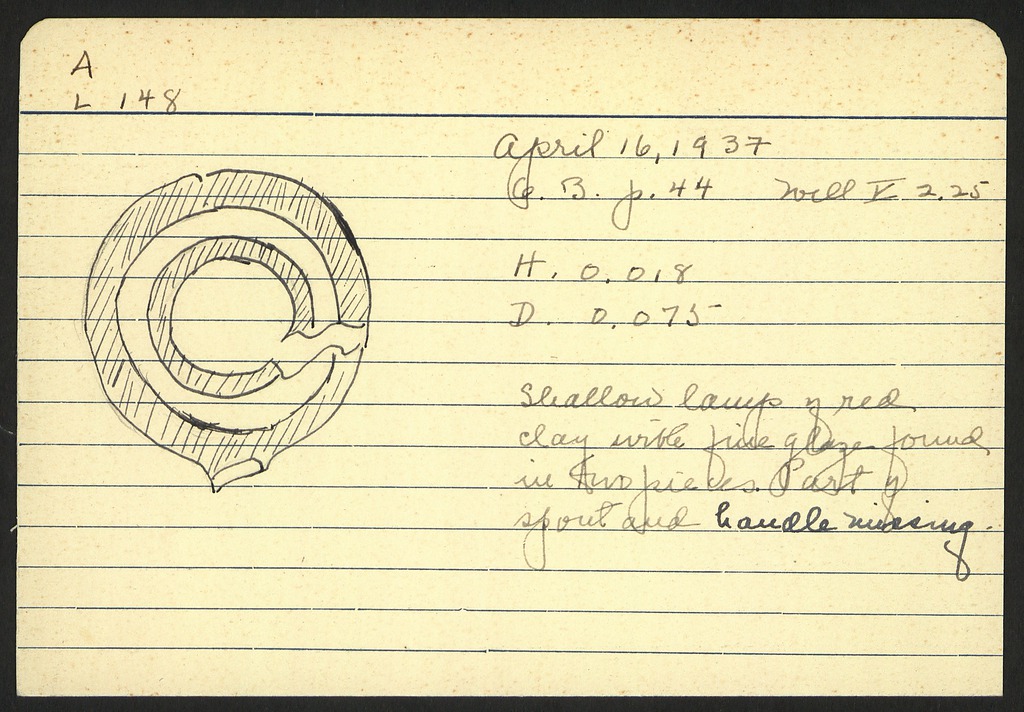 A
L 148
April 16, 1937
G. B. p. 44 Well V 2.25
H. 0.018
D. 0.075
Shallow lamp of red
clay with fine glaze found
in two pieces. Part of
spout and handle missing.